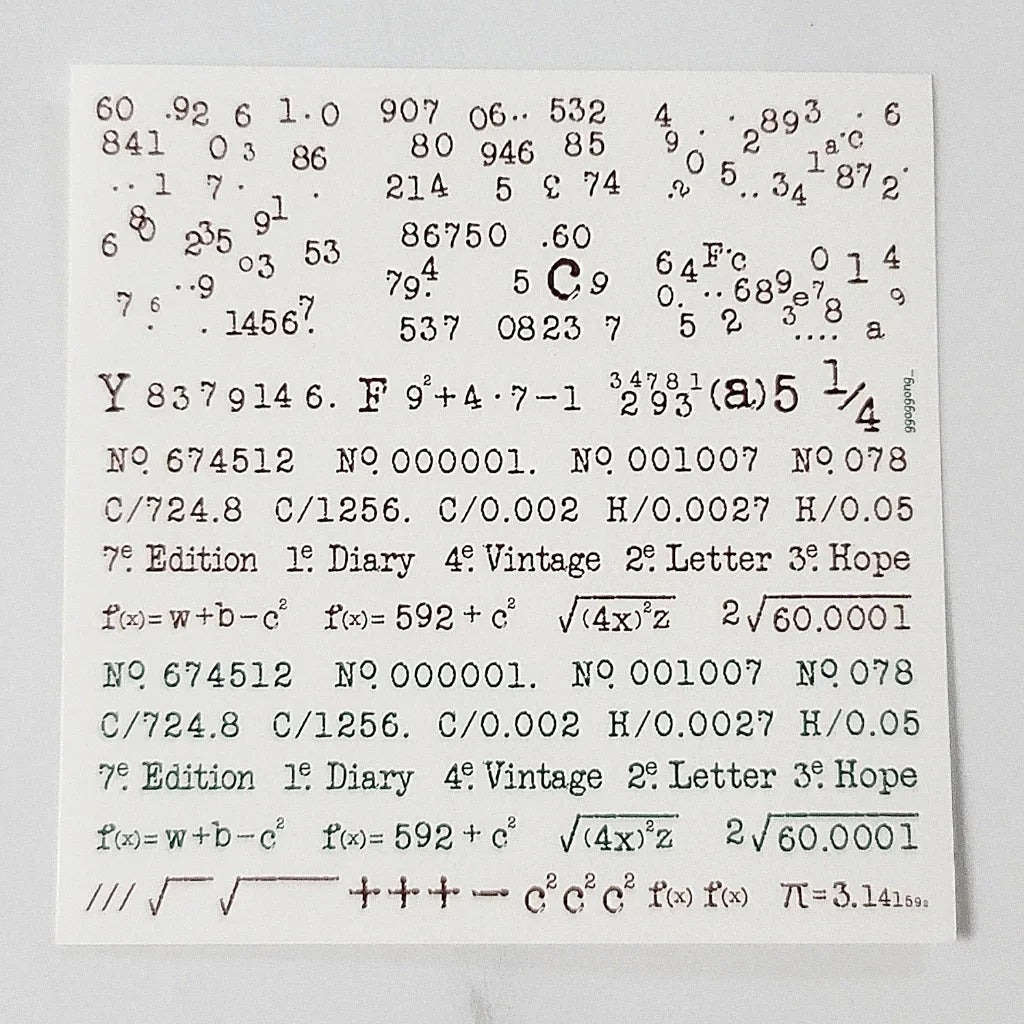 60 .92 6 1.0 907 06.. 532 4 . . . 893 . 6
841 0 3 86 80 946 85 9 0 2 a.c
.. 1 7 . . 214 5 £ 74 .2 5.. 34 1 87 2.
6 80 235 91 53 86750 .60
03 79.4 5 C 9 64 F.c 0 1 4
..9 0. .. 689 e78 9
7 6 . . 14567. 537 0823 7 5 2 3 .... a
Y 8379146. F 9²+4·7−1 34781 293 (a) 5 1/4
Nº. 674512 Nº. 000001. Nº. 001007 Nº. 078
C/724.8 C/1256. C/0.002 H/0.0027 H/0.05
7ᵉ. Edition 1ᵉ. Diary 4ᵉ. Vintage 2ᵉ. Letter 3ᵉ. Hope
f(x)=w+b−c² f(x)=592+c² √(4x)²z 2√60.0001
Nº. 674512 Nº. 000001. Nº. 001007 Nº. 078
C/724.8 C/1256. C/0.002 H/0.0027 H/0.05
7ᵉ. Edition 1ᵉ. Diary 4ᵉ. Vintage 2ᵉ. Letter 3ᵉ. Hope
f(x)=w+b−c² f(x)=592+c² √(4x)²z 2√60.0001
/// √ √ +++− c²c²c² f(x) f(x) π=3.14159₂